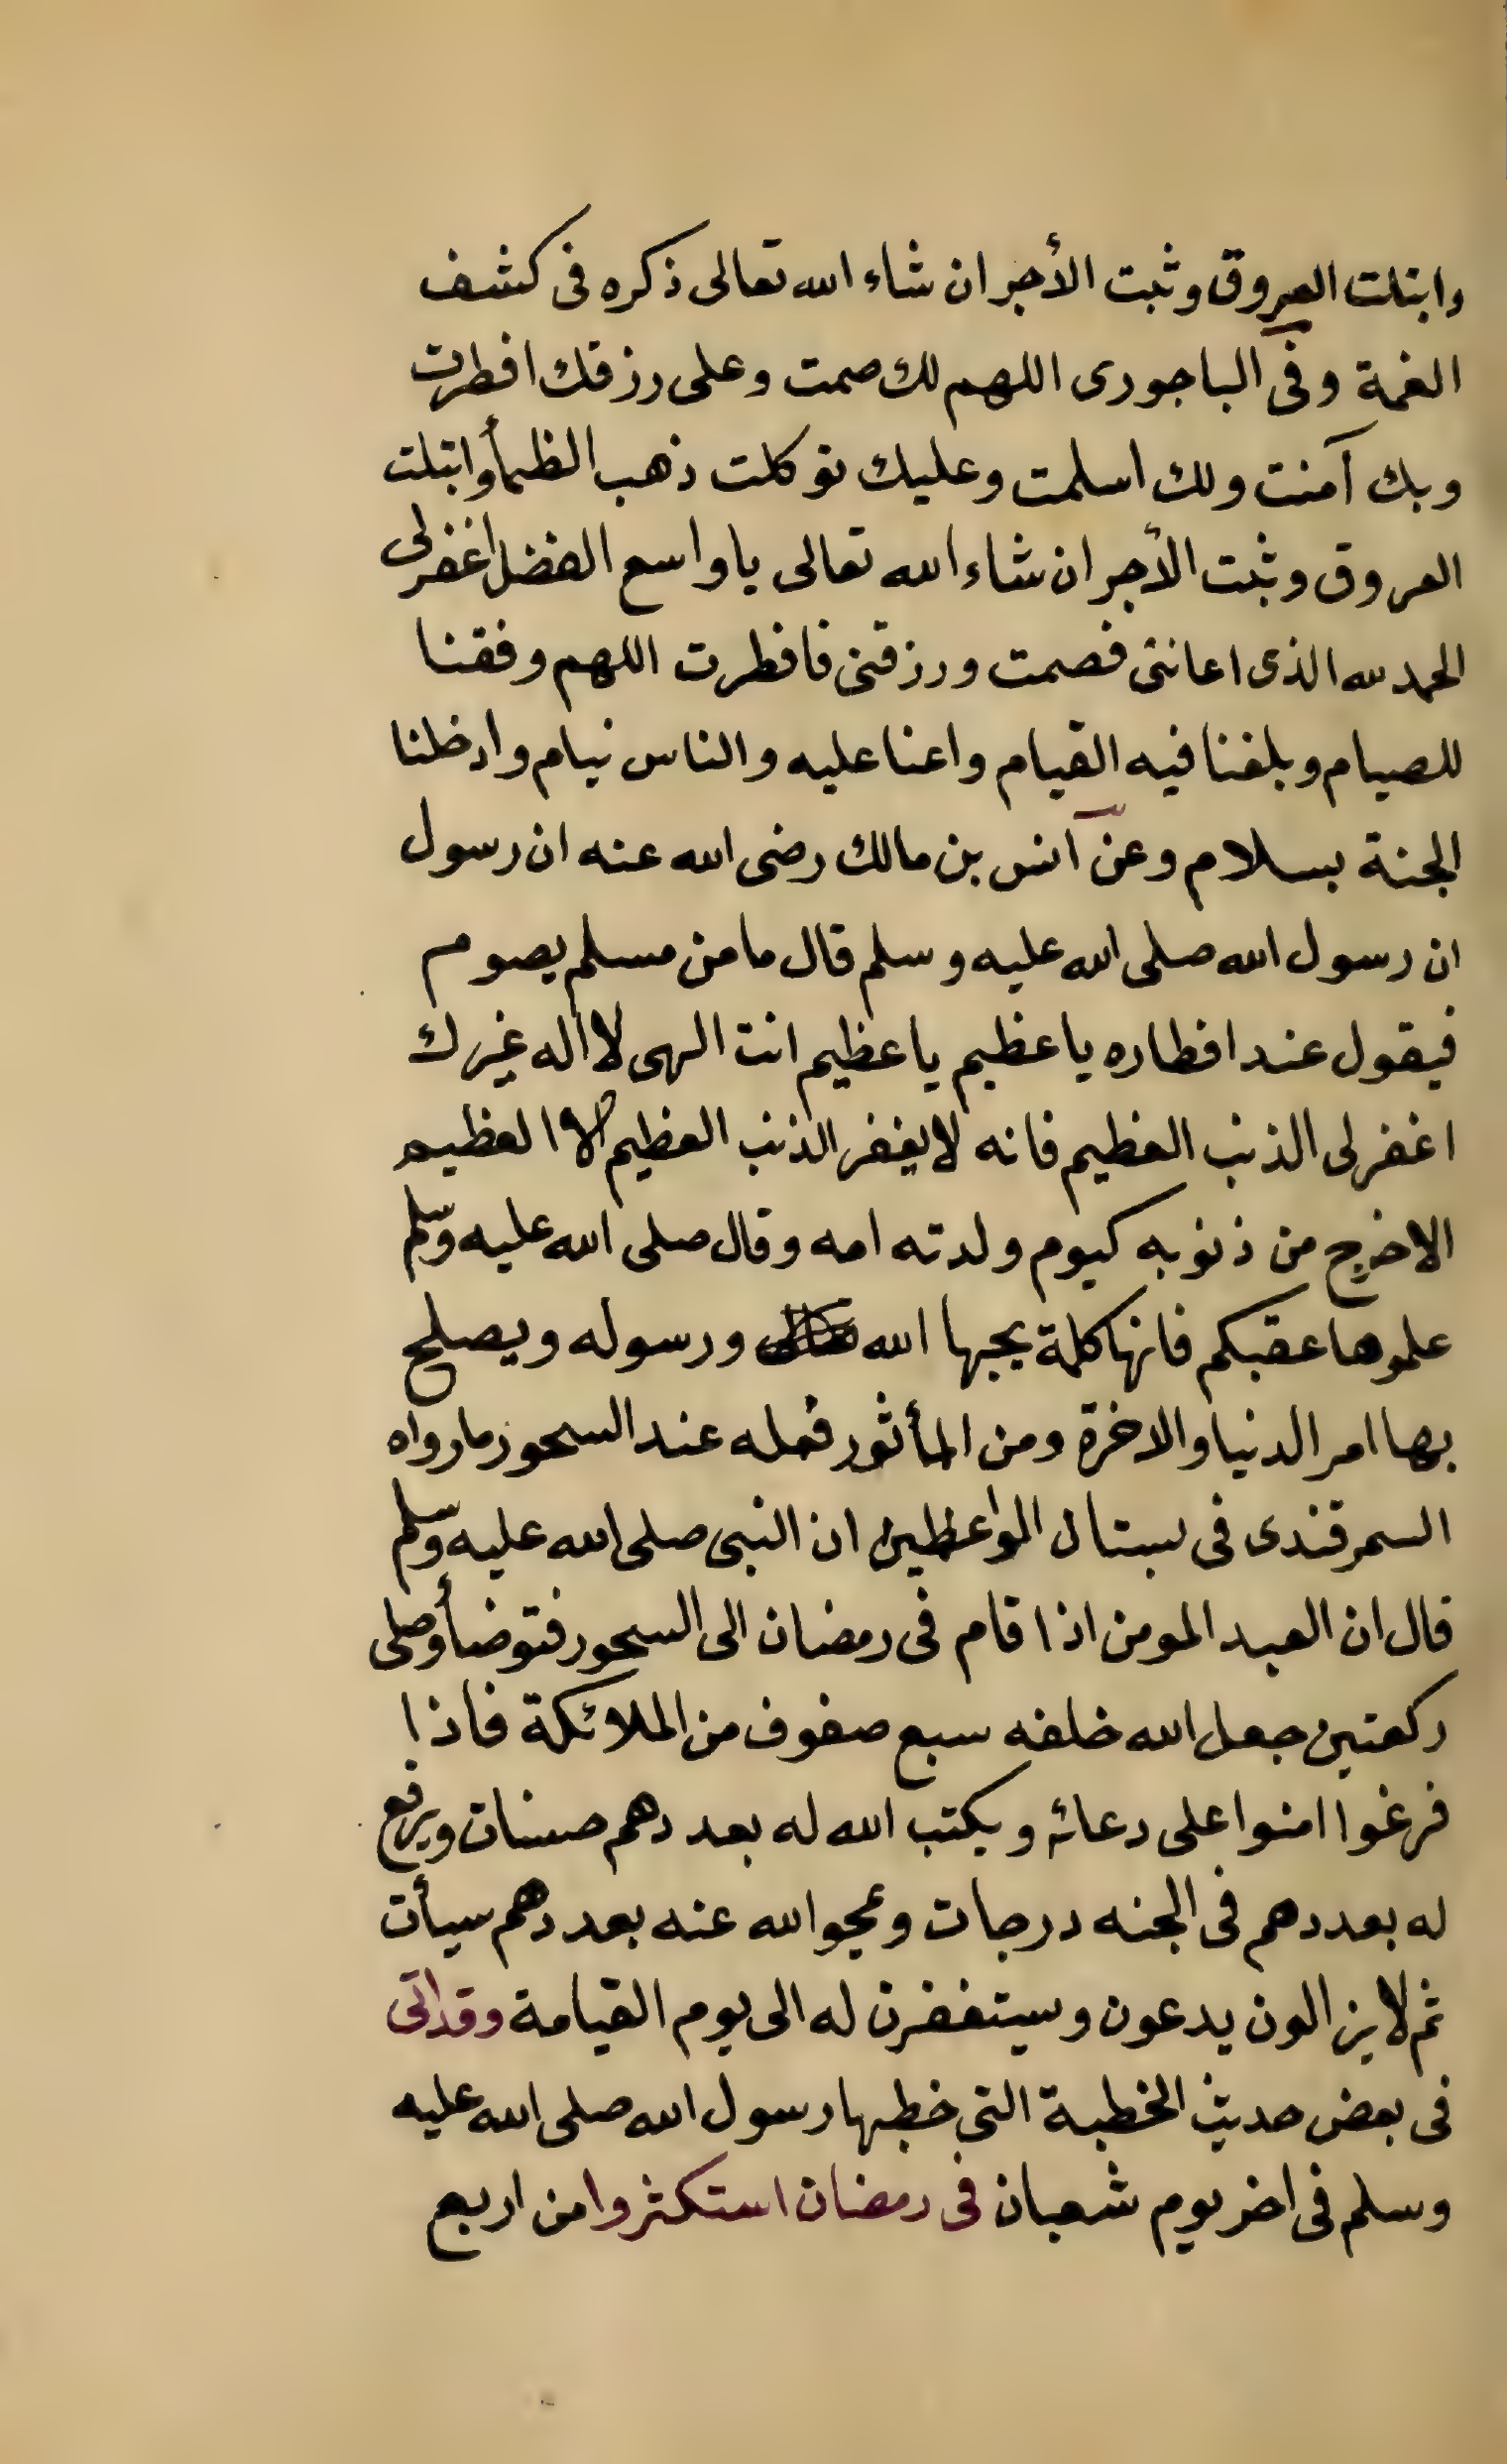 وابتلت العروق وثبت الأجر ان شاء الله تعالى ذكره فى كشف
الغمة وفى الباجورى اللهم لك صمت وعلى رزقك افطرت
وبك آمنت ولك اسلمت وعليك توكلت ذهب الظمأ وابتلت
العروق وثبت الأجر ان شاء الله تعالى يا واسع الفضل اغفر لى
الحمد لله الذى اعاننى فصمت ورزقنى فافطرت اللهم وفقنا
للصيام وبلغنا فيه القيام واعنا عليه والناس نيام وادخلنا
الجنة بسلام وعن انس بن مالك رضى الله عنه ان رسول
ان رسول الله صلى الله عليه وسلم قال ما من مسلم يصوم
فيقول عند افطاره يا عظيم يا عظيم انت الهى لا اله غيرك
اغفر لى الذنب العظيم فانه لا يغفر الذنب العظيم الا العظيم
الا خرج من ذنوبه كيوم ولدته امه وقال صلى الله عليه وسلم
علموها عقبكم فانها كلمة يحبها الله ورسوله ويصلح
بها امر الدنيا والاخرة ومن المأثور فعله عند السحور ما رواه
السمرقندى فى بستان الواعظين ان النبى صلى الله عليه وسلم
قال ان العبد المومن اذا قام فى رمضان الى السحور فتوضأ وصلى
ركعتين جعل الله خلفه سبع صفوف من الملائكة فاذا
فرغوا امنوا على دعائه ويكتب الله له بعددهم حسنات ويرفع
له بعددهم فى الجنه درجات ويمحو الله عنه بعددهم سيأت
ثم لا يزالون يدعون وسيتغفرن له الى يوم القيامة وقد اتى
فى بعض حديث الخطبة التى خطبها رسول الله صلى الله عليه
وسلم فى اخر يوم شعبان فى رمضان استكثروا من اربع